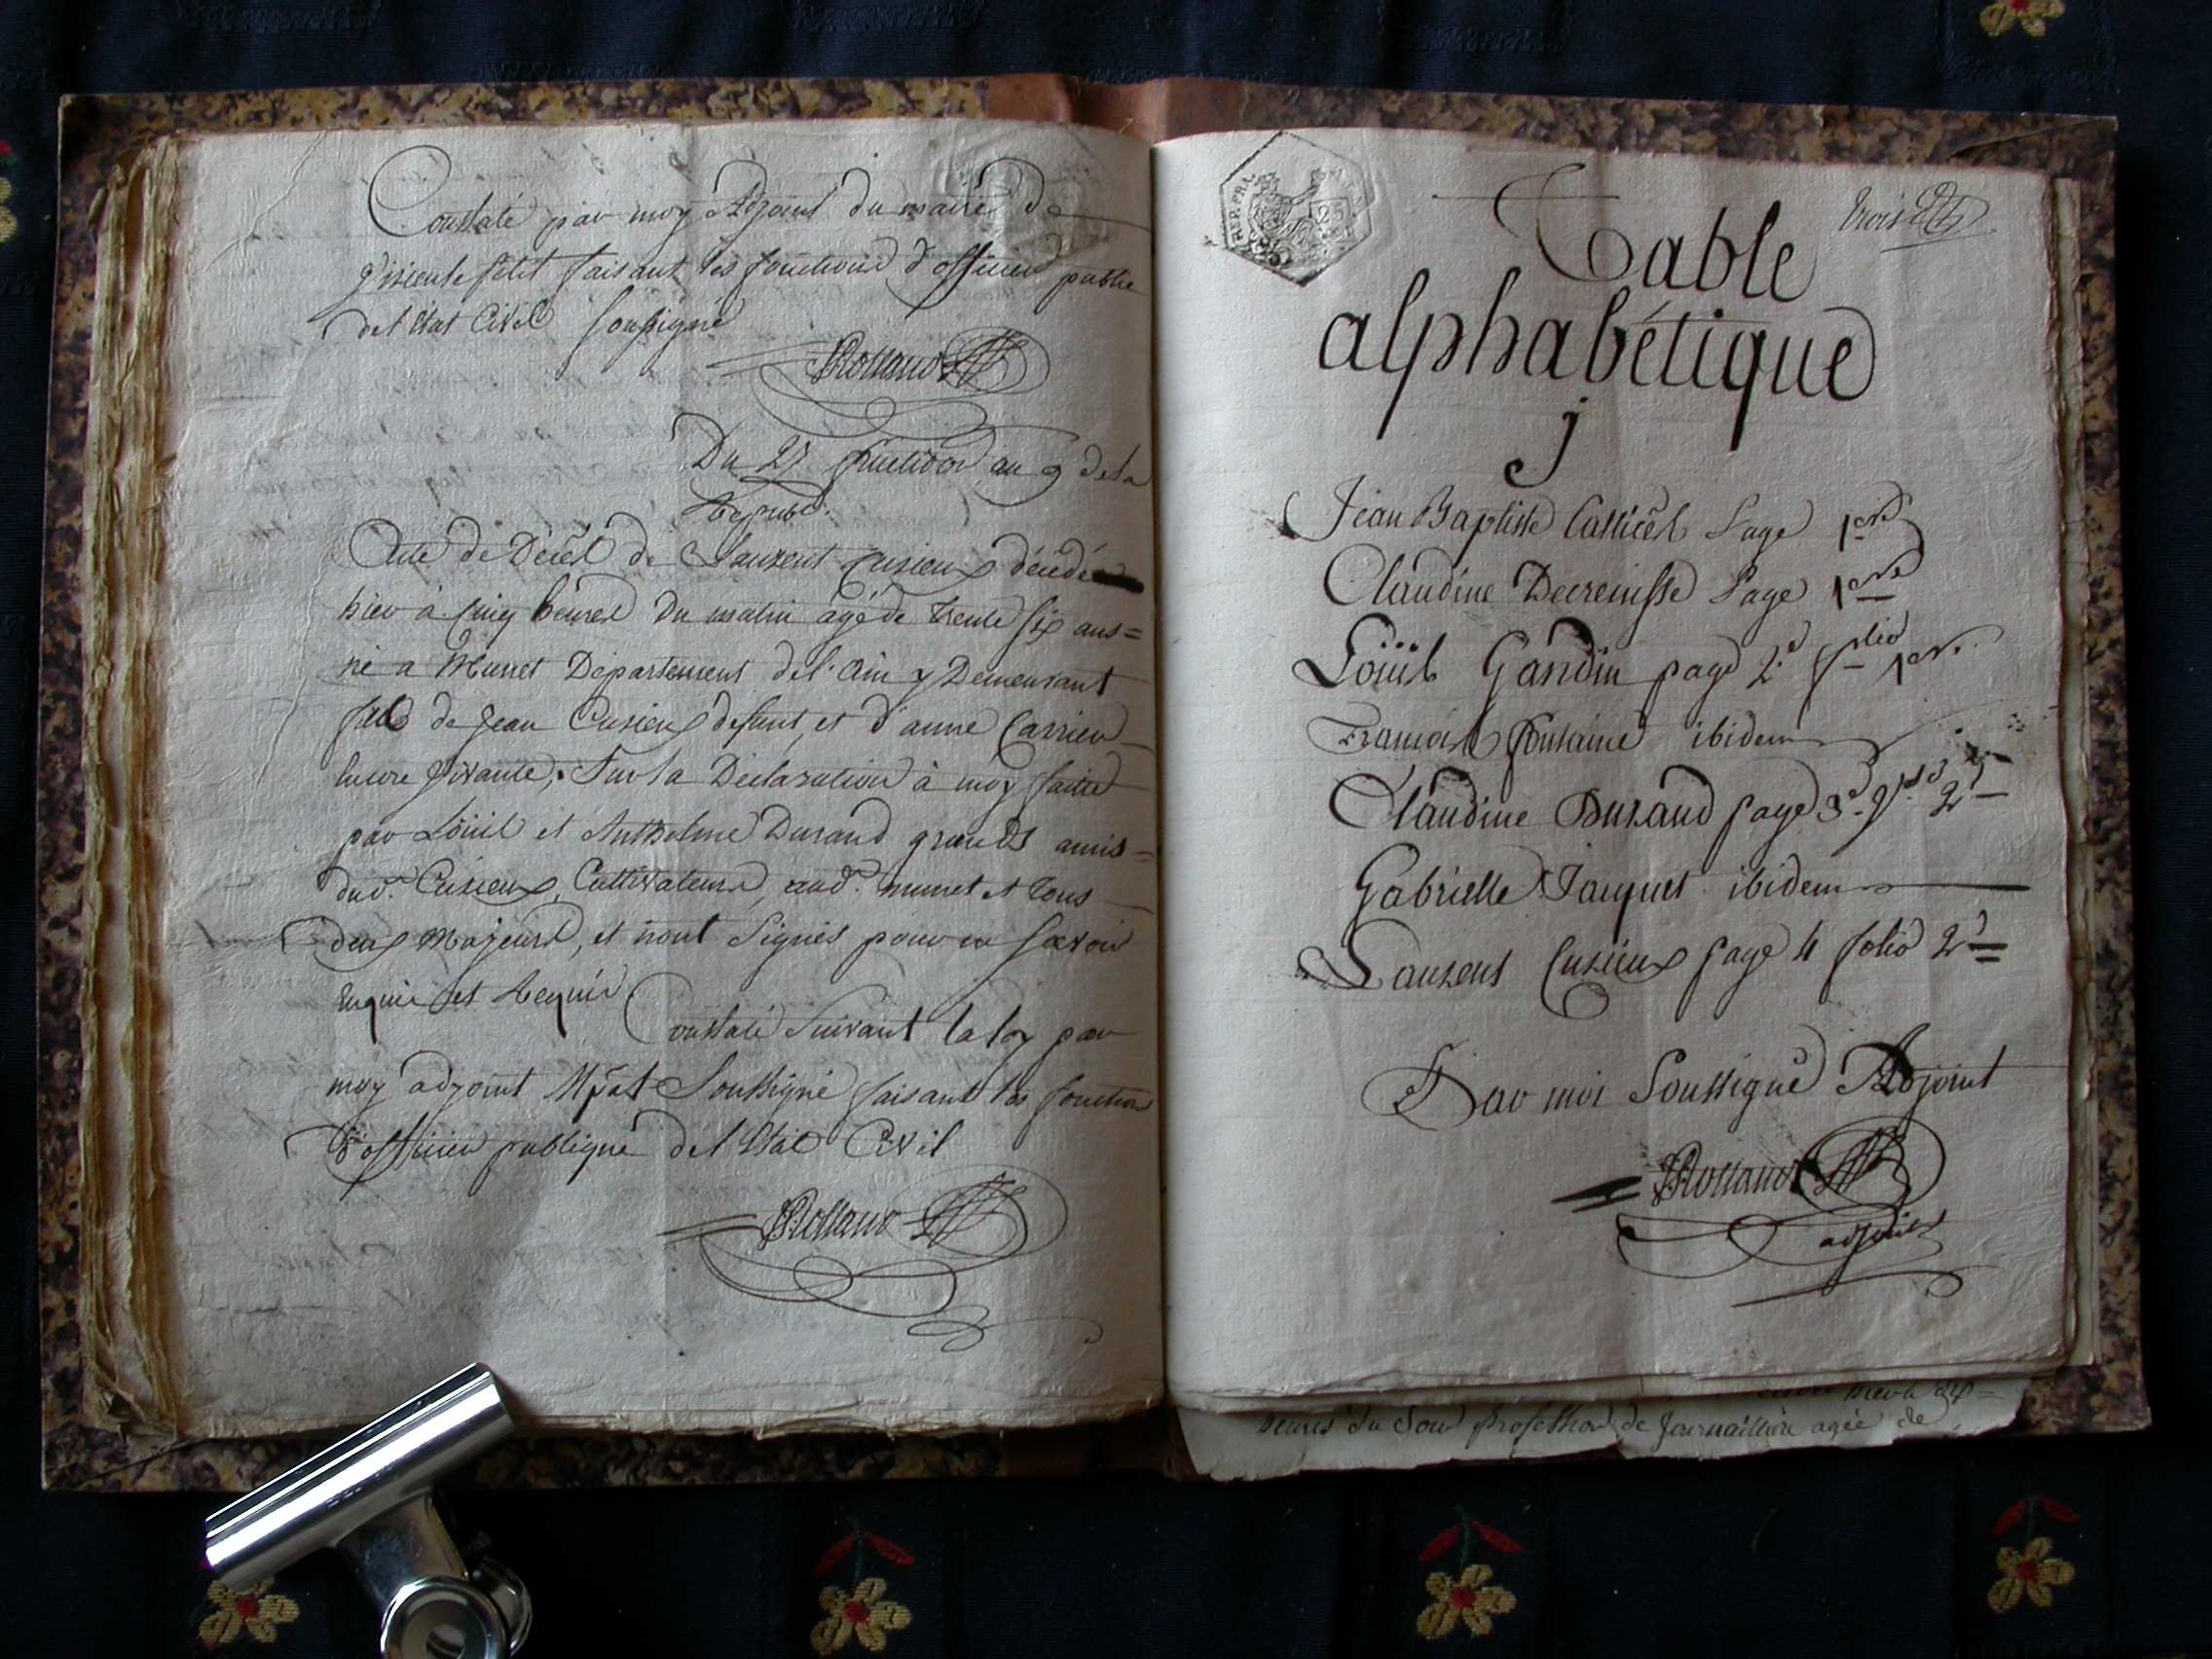 Constaté par moy Adjoint du maire de
petit faisant les fonctions d'officier public
de l'Etat Civil soussigné
Rolland
Du 27 fructidor an 9 de la
Republ.
Acte de Décès de Laurent Cusieux décédé
hier à cinq heures du matin âgé de trente six ans =
né a Murret Département de l'Ain y Demeurant
fils de Jean Cusieux defunt, et d'anne Carrier
Encore vivante, Sur la Déclaration à moy faitte
par Loüis et Anthelme Durand grands amis =
dud. Cusieux, Cultivateurs, aud. murret et tous
deux Majeurs, et n'ont Signés pour ne savoir
Enquis et Requis
Constaté Suivant la loy par
moy adjoint Mpal Soussigné faisant les fonction
d'officier publique de l'Etat Civil
Rolland
REP. FRA.
25
Trois
Table
alphabétique
j
Jean Baptiste Page 1ere
Claudine Decreinsse Page 1ere
Loüis Gandin page 2e folio 1er.
François fontaine ibidem
Claudine Durand page 3e 2
Gabrielle Jacquet ibidem
Laurens Cusieux page 4 folio 2
Par moi Soussigné Adjoint
Rolland
adjoint
heures du Soir profession de Journaillière agée de